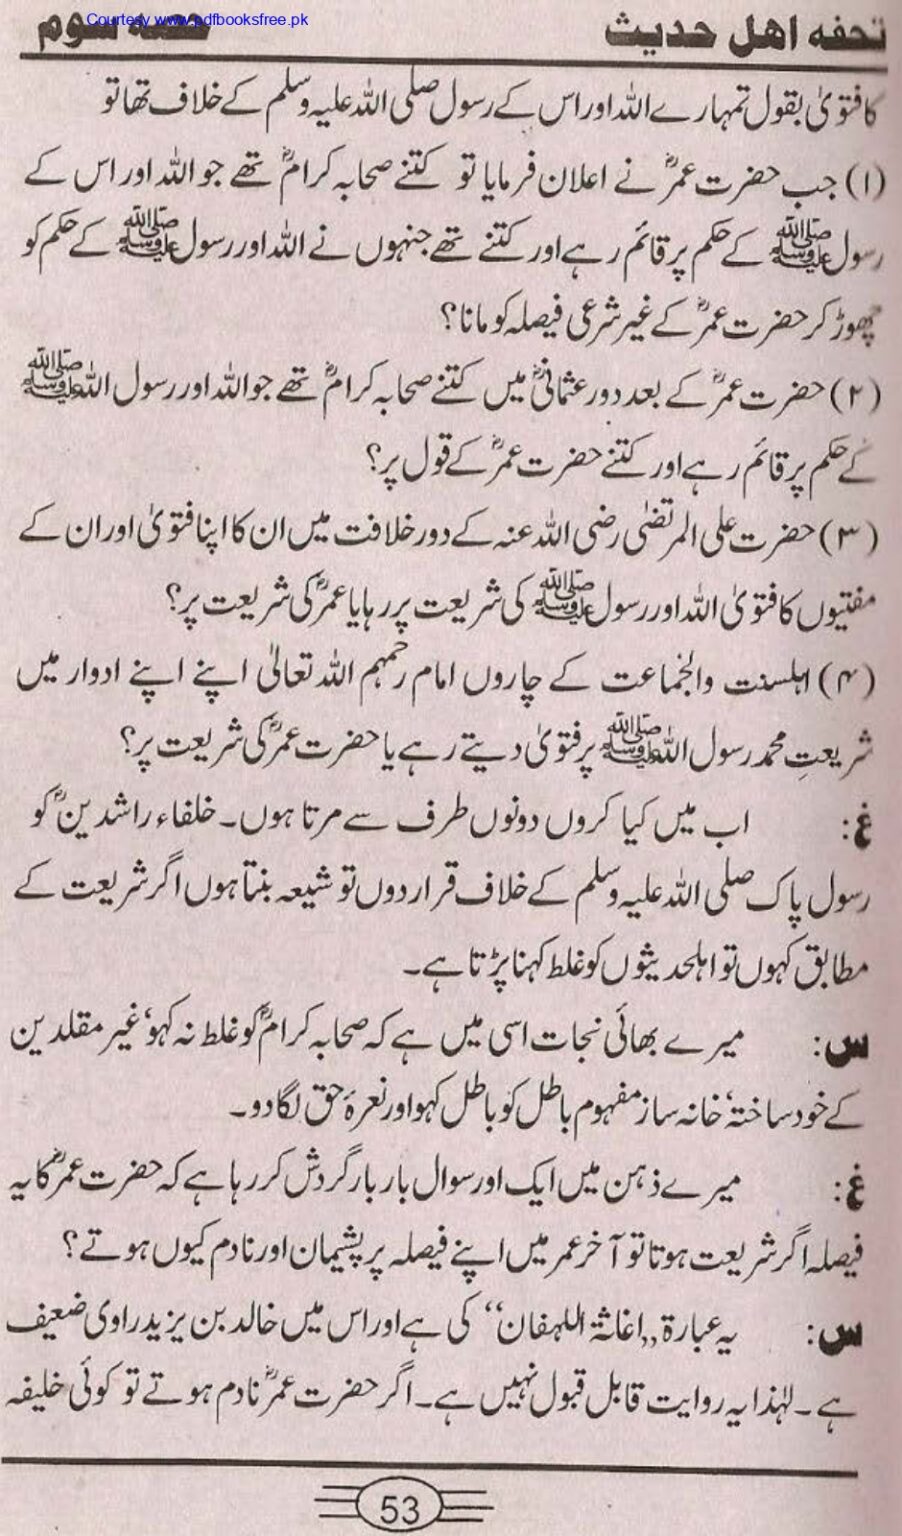 Courtesy www.pdfbooksfree.pk
تحفہ اھل حدیث حصہ سوم
کا فتویٰ بقول تمہارے اللہ اور اس کے رسول صلی اللہ علیہ وسلم کے خلاف تھا تو
(۱) جب حضرت عمرؓ نے اعلان فرمایا تو کتنے صحابہ کرامؓ تھے جو اللہ اور اس کے
رسول ﷺ کے حکم پر قائم رہے اور کتنے تھے جنہوں نے اللہ اور رسول ﷺ کے حکم کو
چھوڑ کر حضرت عمرؓ کے غیر شرعی فیصلہ کو مانا؟
(۲) حضرت عمرؓ کے بعد دور عثمانیؓ میں کتنے صحابہ کرامؓ تھے جو اللہ اور رسول اللہ ﷺ
کے حکم پر قائم رہے اور کتنے حضرت عمرؓ کے قول پر؟
(۳) حضرت علی المرتضٰی رضی اللہ عنہ کے دور خلافت میں ان کا اپنا فتویٰ اور ان کے
مفتیوں کا فتویٰ اللہ اور رسول ﷺ کی شریعت پر رہا یا عمرؓ کی شریعت پر؟
(۴) اہلسنت والجماعت کے چاروں امام رحمہم اللہ تعالیٰ اپنے اپنے ادوار میں
شریعتِ محمد رسول اللہ ﷺ پر فتویٰ دیتے رہے یا حضرت عمرؓ کی شریعت پر؟
غ: اب میں کیا کروں دونوں طرف سے مرتا ہوں۔ خلفاء راشدینؓ کو
رسول پاک صلی اللہ علیہ وسلم کے خلاف قرار دوں تو شیعہ بنتا ہوں اگر شریعت کے
مطابق کہوں تو اہلحدیثوں کو غلط کہنا پڑتا ہے۔
س: میرے بھائی نجات اسی میں ہے کہ صحابہ کرامؓ کو غلط نہ کہو، غیر مقلدین
کے خود ساختہ، خانہ ساز مفہوم باطل کو باطل کہو اور نعرۂ حق لگا دو۔
غ: میرے ذہن میں ایک اور سوال بار بار گردش کر رہا ہے کہ حضرت عمرؓ کا یہ
فیصلہ اگر شریعت ہوتا تو آخر عمر میں اپنے فیصلہ پر پشیمان اور نادم کیوں ہوتے؟
س: یہ عبارۃ ،،اغاثۃ اللہفان‘‘ کی ہے اور اس میں خالد بن یزید راوی ضعیف
ہے۔ لہٰذا یہ روایت قابل قبول نہیں ہے۔ اگر حضرت عمرؓ نادم ہوتے تو کوئی خلیفہ
53